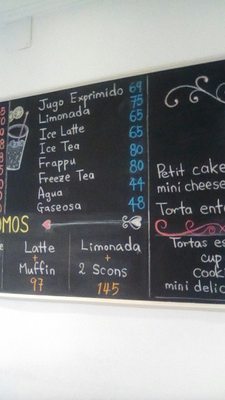 Jugo Exprimido 69
Limonada 75
Ice Latte 65
Ice Tea 65
Frappu 80
Freeze Tea 80
Agua 44
Gaseosa 48
OMOS
Latte
+
Muffin
97
Limonada
+
2 Scons
145
Petit cake
mini cheese
Torta ent
Tortas es
cup
cook
mini delic